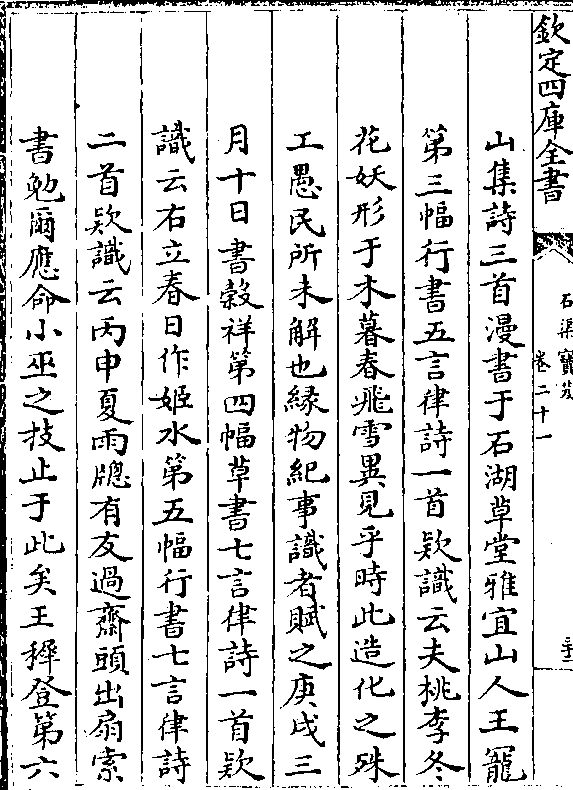 欽定四庫全書
石渠寶笈
卷二十一
三十二
山集詩三首漫書于石湖草堂雅宜山人王寵
第三幅行書五言律詩一首欵識云夫桃李冬
花妖形于木暮春飛雪異見乎時此造化之殊
工愚民所未解也緣物紀事識者賦之庚戌三
月十日書榖祥第四幅草書七言律詩一首欵
識云右立春日作姬水第五幅行書七言律詩
二首欵識云丙申夏雨牕有友過齋頭出扇索
書勉爾應命小巫之技止于此矣王穉登第六